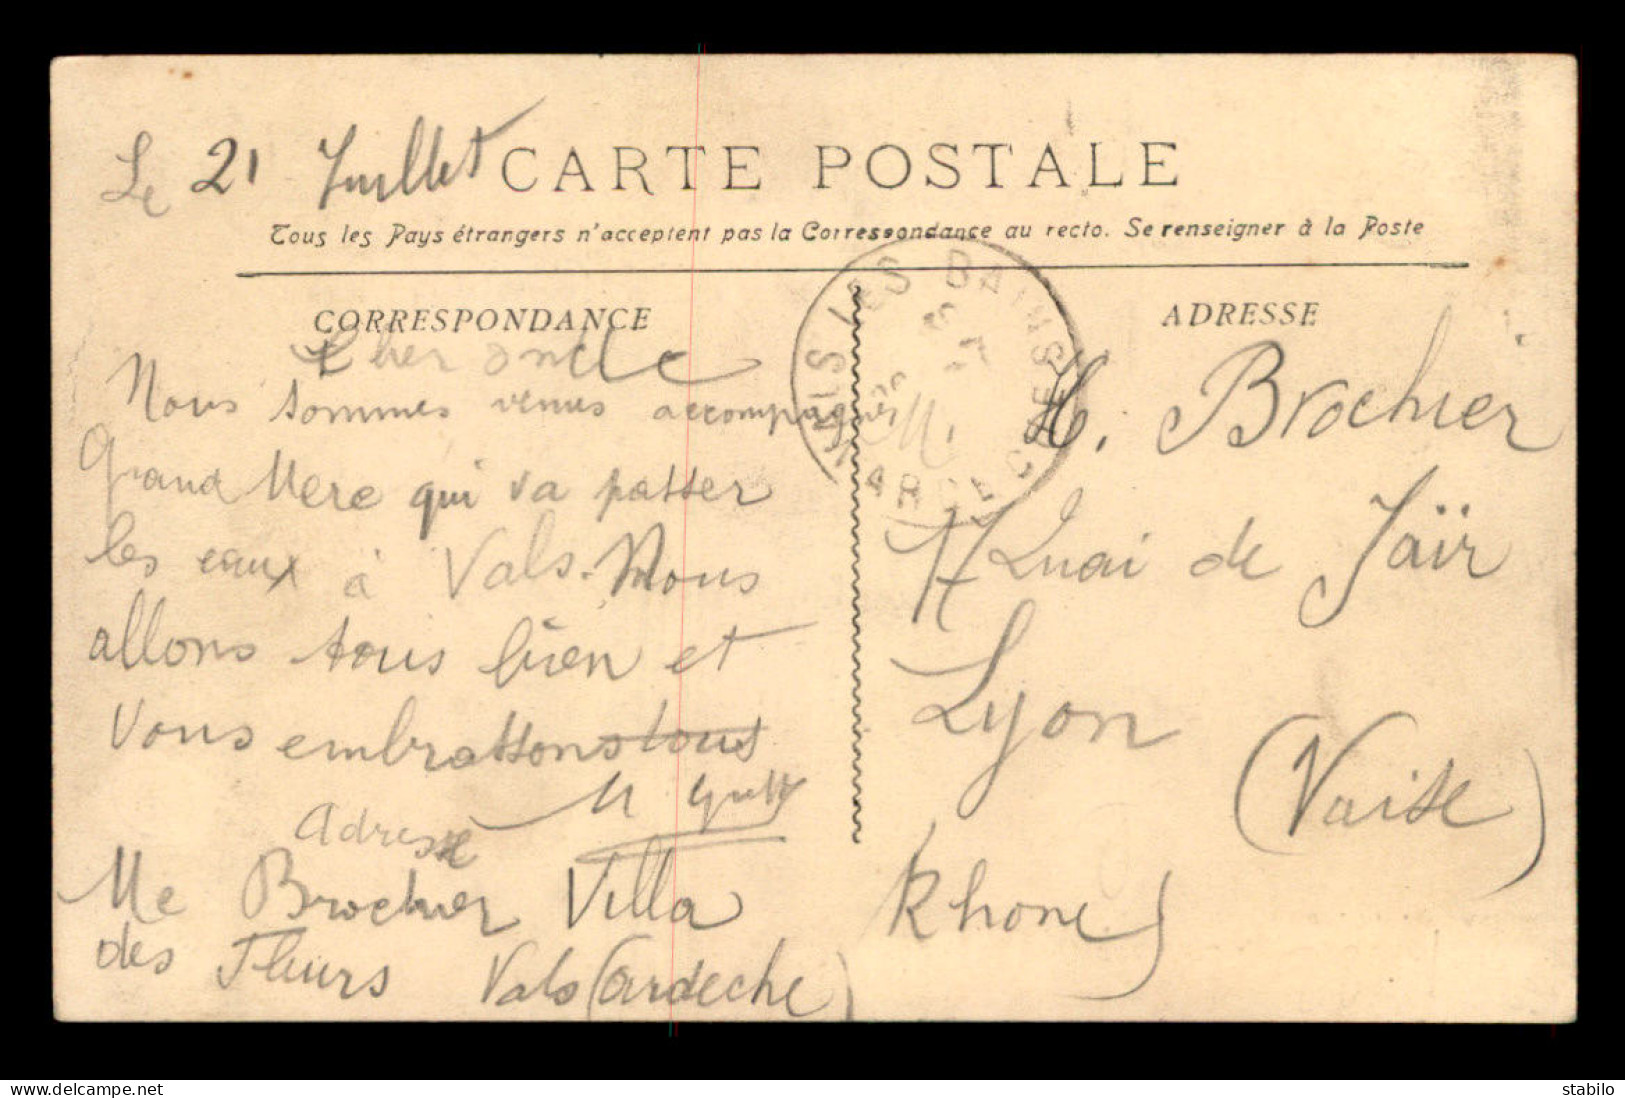 Le 21 Juillet
CARTE POSTALE
Tous les Pays étrangers n'acceptent pas la Correspondance au recto. Se renseigner à la Poste
CORRESPONDANCE
Cher oncle
Nous sommes venus accompagner
Grand Mere qui va passer
les eaux à Vals. Nous
allons tous bien et
vous embrassons tous
M
Adresse
Me Brochier Villa
des Fleurs Vals (Ardeche)
VALS LES BAINS
ARDECHE
ADRESSE
M. Brochier
17 Quai de Jaÿr
Lyon
(Vaise)
Rhone)
delcampe.net
stabilo